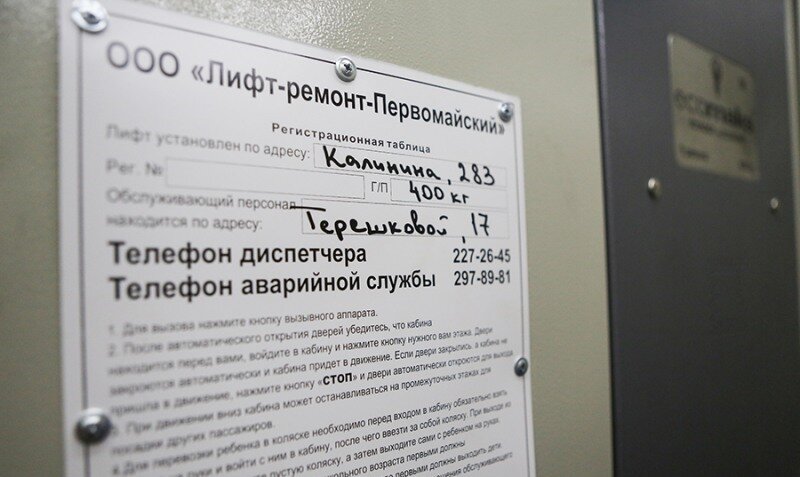 ООО «Лифт-ремонт-Первомайский»
Регистрационная таблица
Лифт установлен по адресу: Калинина, 283
Рег. № Г/П 400 кг
Обслуживающий персонал
находится по адресу: Терешковой, 17
Телефон диспетчера 227-26-45
Телефон аварийной службы 297-89-81
1. Для вызова нажмите кнопку вызывного аппарата.
2. После автоматического открытия дверей убедитесь, что кабина
находится перед вами, войдите в кабину и нажмите кнопку нужного вам этажа. Двери
закроются автоматически и кабина придет в движение. Если двери закрылись, а кабина не
пришла в движение, нажмите кнопку «стоп» и двери автоматически откроются для выхода
3. При движении вниз кабина может останавливаться на промежуточных этажах для
посадки других пассажиров.
4. Для перевозки ребенка в коляске необходимо перед входом в кабину обязательно взять
руки и войти с ним в кабину, после чего ввезти за собой коляску. При выходе из
пустую коляску, а затем выходите сами с ребенком на руках.
школьного возраста первыми должны
первыми должны выходить дети
обслуживающего
ecomaks